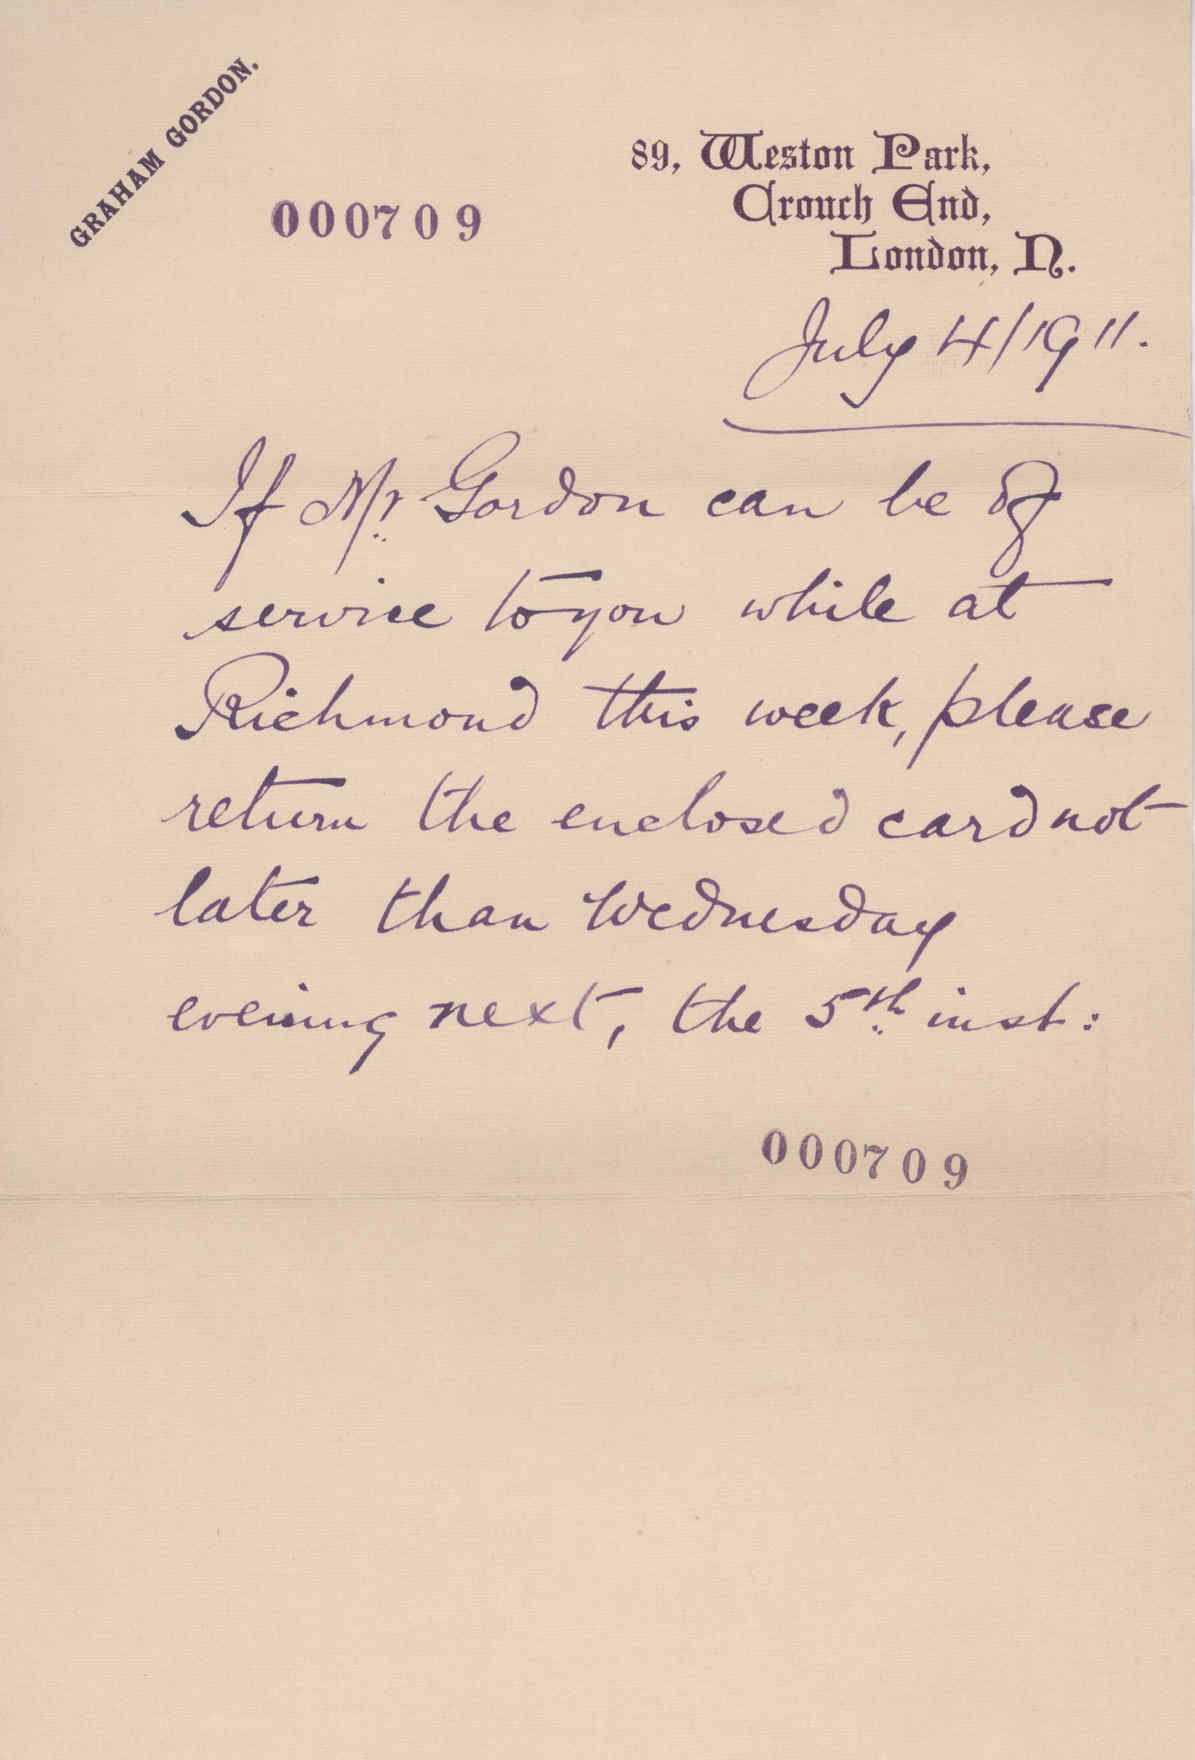 GRAHAM GORDON.
89, Weston Park,
Crouch End,
London, N.
000709
July 4/1911.
If Mr Gordon can be of
service to you while at
Richmond this week, please
return the enclosed card not
later than Wednesday
evening next, the 5th inst:
000709